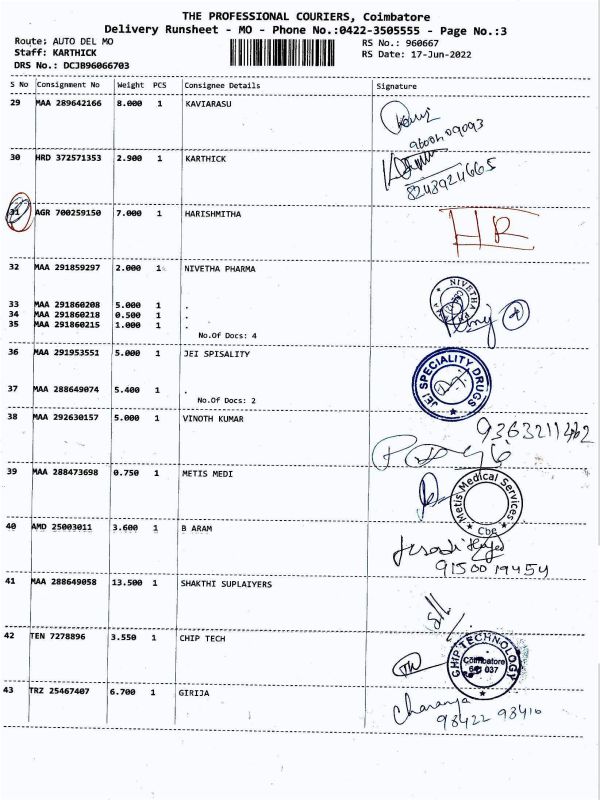 THE PROFESSIONAL COURIERS, Coimbatore
Delivery Runsheet - MO - Phone No.:0422-3505555 - Page No.:3
Route: AUTO DEL MO
RS No.: 960667
Staff: KARTHICK
RS Date: 17-Jun-2022
DRS No.: DCJB96066703
S No Consignment No Weight PCS Consignee Details Signature
29 MAA 289642166 8.000 1 KAVIARASU
30 HRD 372571353 2.900 1 KARTHICK
8248924665
31 AGR 700259150 7.000 1 HARISHMITHA
HR
32 MAA 291859297 2.000 1 NIVETHA PHARMA
NIVETHA
33 MAA 291860208 5.000 1 .
34 MAA 291860218 0.500 1 .
35 MAA 291860215 1.000 1 .
No.Of Docs: 4
36 MAA 291953551 5.000 1 JEI SPISALITY
JEI SPECIALITY DRUGS
37 MAA 288649074 5.400 1 .
No.Of Docs: 2
38 MAA 292630157 5.000 1 VINOTH KUMAR
39 MAA 288473698 0.750 1 METIS MEDI
Metis Medical Services
Cbe
40 AMD 25003011 3.600 1 B ARAM
9150019454
41 MAA 288649058 13.500 1 SHAKTHI SUPLAIYERS
42 TEN 7278896 3.550 1 CHIP TECH
CHIP TECHNOLOGY
Coimbatore
641 037
43 TRZ 25467407 6.700 1 GIRIJA
Charanya
98422 98410